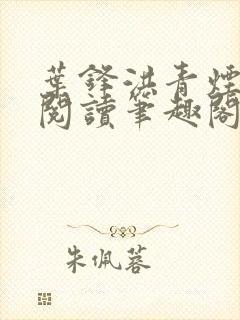 葉鋒洪青煙
閱讀筆趣閣
朱佩蓉